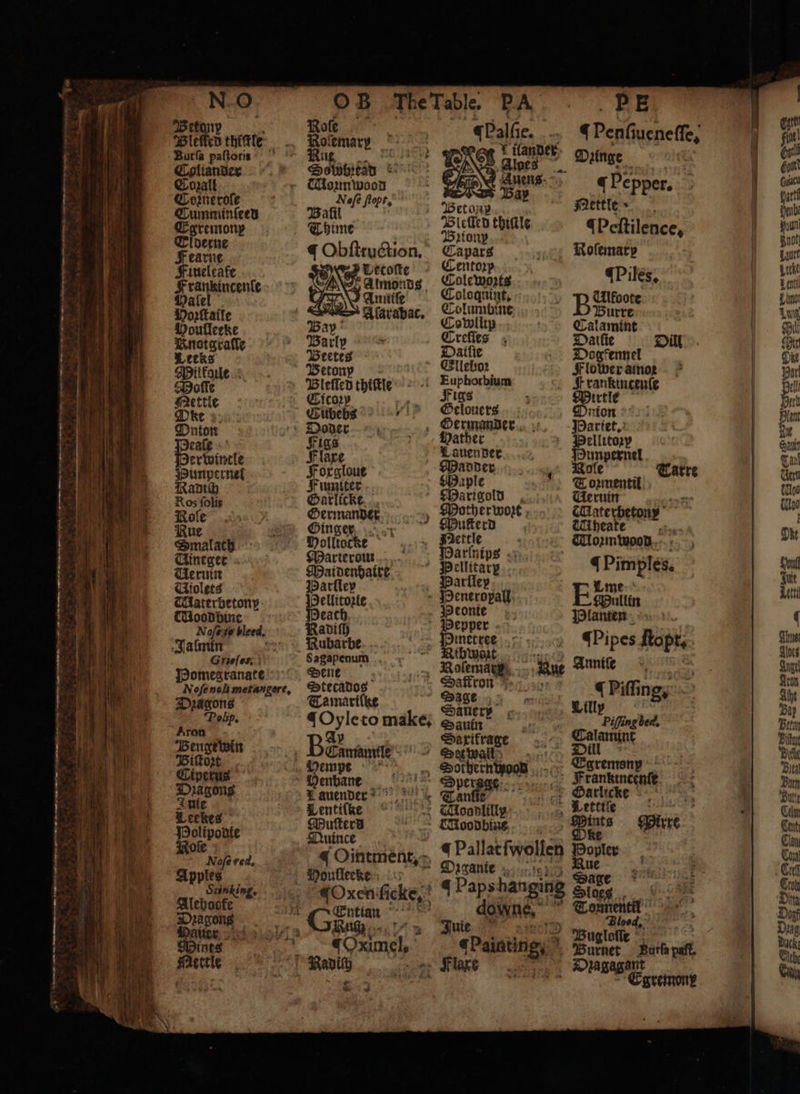 N.O OB The Table. PA PE
Betony
Blessed thistle
Bursa pastoris
Coliander
Corall
Cornerose
Cumminseed
Egremony
Elderne
Fearne
Fineleafe
Frankincense
Hasel
Horstaile
Housleeke
Knotgrasse
Leeks
Milfoile
Mosse
Nettle
Oke
Onion
Pease
Perwincle
Pimpernel
Radish
Ros solis
Rose
Rue
Smalach
Vineger
Veruin
Violets
Waterbetony
Woodbine
Nose to bleed.
Jasmin
Griefes.
Pomegranate
Nose noli me tangere,
Dragons
Polip.
Aron
Bengewin
Bistort
Ciperus
Dragons
Iuie
Leekes
Polipodie
Rose
Nose red.
Apples
Stinking.
Alehoofe
Dragons
Mints
Nettle
Rose
Rosemary
Rue
Sowbread
Wormwood
Nose stopt,
Basil
Thime
¶ Obstruction,
Lecoste
Almonds
Annise
Asarabac.
Bay
Barly
Beetes
Betony
Blessed thistle
Cicory
Cubebs
Doder
Figs
Flaxe
Foxgloue
Fumiter
Garlicke
Germander
Ginger
Holliocke
Marierom
Maidenhaire
Parsley
Pellitorie
Peach
Radish
Rubarbe
Sagapenum
Sene
Stecados
Tamariske
¶ Oyle to make,
Bay
Camamile
Hempe
Henbane
Lauender
Lentiske
Musterd
Quince
¶ Ointment,
Housleeke
¶ Oxen sicke,
Gentian
Rush
¶ Oximel,
Radish
¶ Palsie.
Aloes
Auens
Bay
Betony
Blessed thistle
Briony
Capars
Centory
Coleworts
Coloquint,
Columbine
Cowslip
Cresses
Daisie
Ellebor
Euphorbium
Figs
Gelouers
Germander
Hather
Lauender
Madder
Maple
Marigold
Motherwort
Musterd
Nettle
Parsnips
Pellitary
Parsley
Peneroyall
Peonie
Pepper
Pinetree
Ribwort
Rosemary, Rue
Saffron
Sage
Sauery
Sauin
Saxifrage
Setwall
Sothernwood
Sperage
Tansie
Woodlilly
Woodbine
¶ Pallat swollen
Organie
¶ Paps hanging downe,
Iuie
¶ Painting,
Flaxe
¶ Pensiuenesse,
Oringe
¶ Pepper.
Nettle
¶ Pestilence,
Rosemary
¶ Piles,
Ulfoote
Burre
Calamint
Daisie Dill
Dogfennel
Flower amor
Frankincense
Mirtle
Onion
Pariet,
Pellitory
Pimpernel
Rose Tarre
Tormentil
Veruin
Waterbetony
Wheate
Wormwood
¶ Pimples.
Elme
Mullin
Planten
¶ Pipes stopt,
Annise
¶ Pissing,
Lilly
Pissing bed,
Calamint
Dill
Egremony
Frankincense
Garlicke
Lettise
Mints Mirre
Oke
Popler
Rue
Sage
Sloes
Tormentil
Blood,
Buglosse
Burnet Bursa past.
Dragagant
Egremony